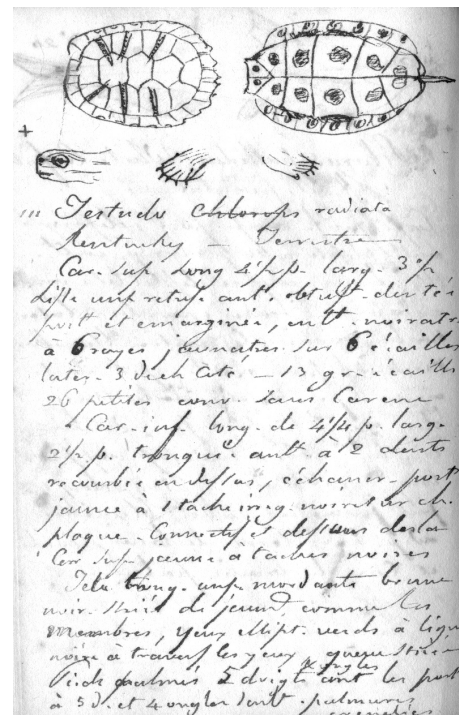 111 Testudo chlorops radiata
Kentuky — Terrestre
Car. sup. Long 4½ p. larg. 3 p
ant. obtus. dentée
post et emarginée, noiratre
à 6 rayes jaunatres sur 6 écailles
later. 3 de ch. coté — 13 gr. écailles
26 petites conv. sans Carene
Car. inf. long. de 4¼ p. larg.
2½ p. tronquée ant. à 2 dents
recourbée en dessus, échancr. post
jaune à 1 tache irreg. noire sur ch.
plaque. Connectif et dessous de la
Car sup. jaune à taches noires
Tete mordante brune
noir. striée de jaune comme les
membres, yeux ellipt. verds à ligne
noire à travers les yeux, queue striée
Pieds palmés 5 doigts ongles ant les post
à 5 d. et 4 ongles palmures